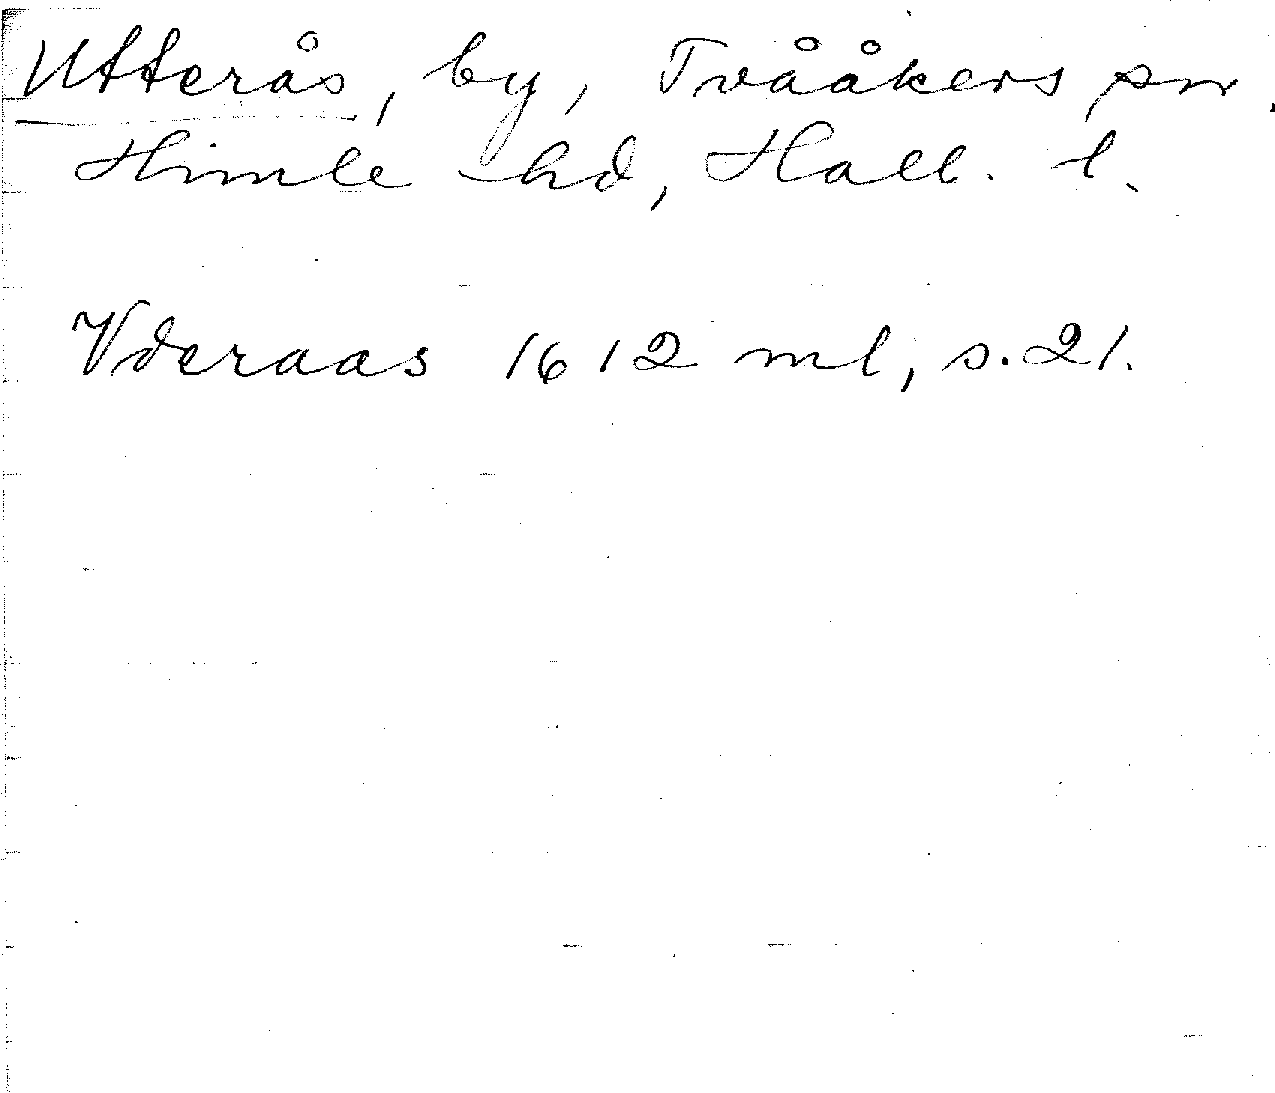 Utterås, by, Tvååkers sn.
Himle hd, Hall. l.
Vderaas 1612 ml, s. 21.